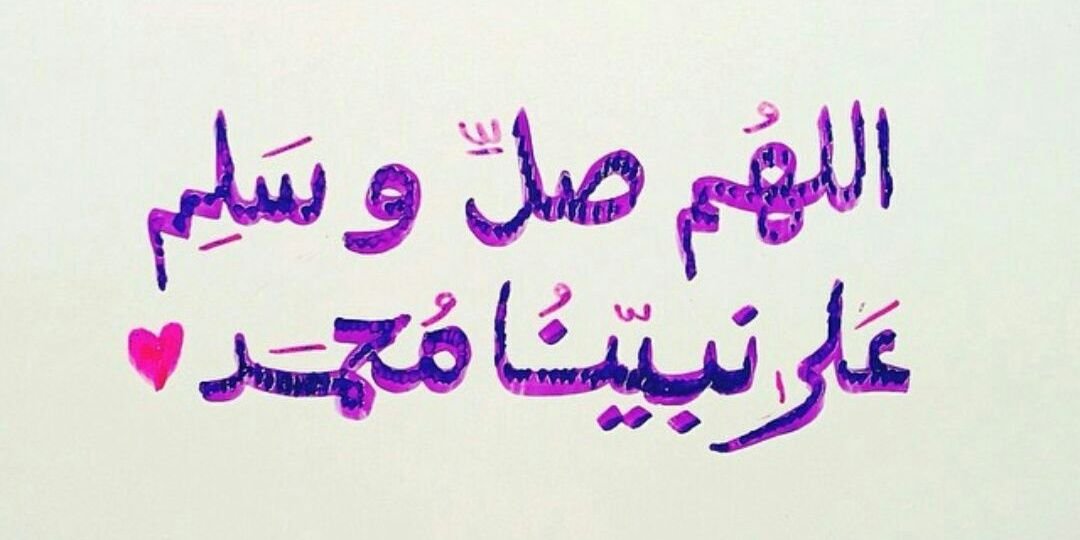 اللهُم صلِّ و سَلِم
عَلى نبيّنُا مُحمَد